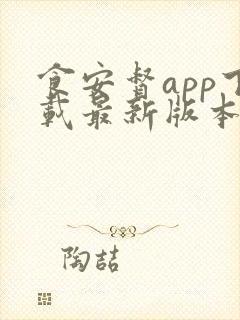 食安督app下
载最新版本
陶喆